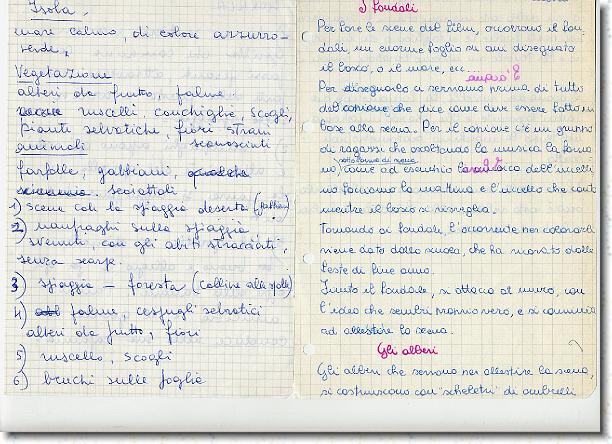 Isola.
mare calmo, di colore azzurro-
verde.
Vegetazione
alberi da frutto, palme.
ruscelli, conchiglie, scogli,
piante selvatiche, fiori strani
animali sconosciuti
farfalle, gabbiani,
scoiattoli
1) scene con la spiaggia deserta (gabbiani)
2) naufraghi sulla spiaggia
svenuti, con gli abiti stracciati,
senza scarpe.
3) spiaggia – foresta (colline alle spalle)
4) palme, cespugli selvatici
alberi da frutto, fiori
5) ruscello, scogli
6) bruchi sulle foglie
I fondali
Per fare le scene del film, occorrono i fon
dali, un enorme foglio su cui disegnato
il bosco, o il mare, ecc.
Per disegnarlo ci serviamo prima di tutto
del copione che dice come deve essere fatto in
base alla scena. Per il copione c'è un gruppo
di ragazzi che ascoltando la musica la forma
sotto forma di scena
no, come ad esempio la musica dell'uccelli
no facciamo la mattina e l'uccello che canta
mentre il bosco si risveglia.
Tornando ai fondali, l'occorrente per colorarli
viene dato dalla scuola, che ha ricavato dalle
feste di fine anno.
Finito il fondale, si attacca al muro, con
l'idea che sembri proprio vero, e si comincia
ad allestire la scena.
Gli alberi
Gli alberi che servono per allestire la scena,
si costruiscono con "scheletri" di ombrelli